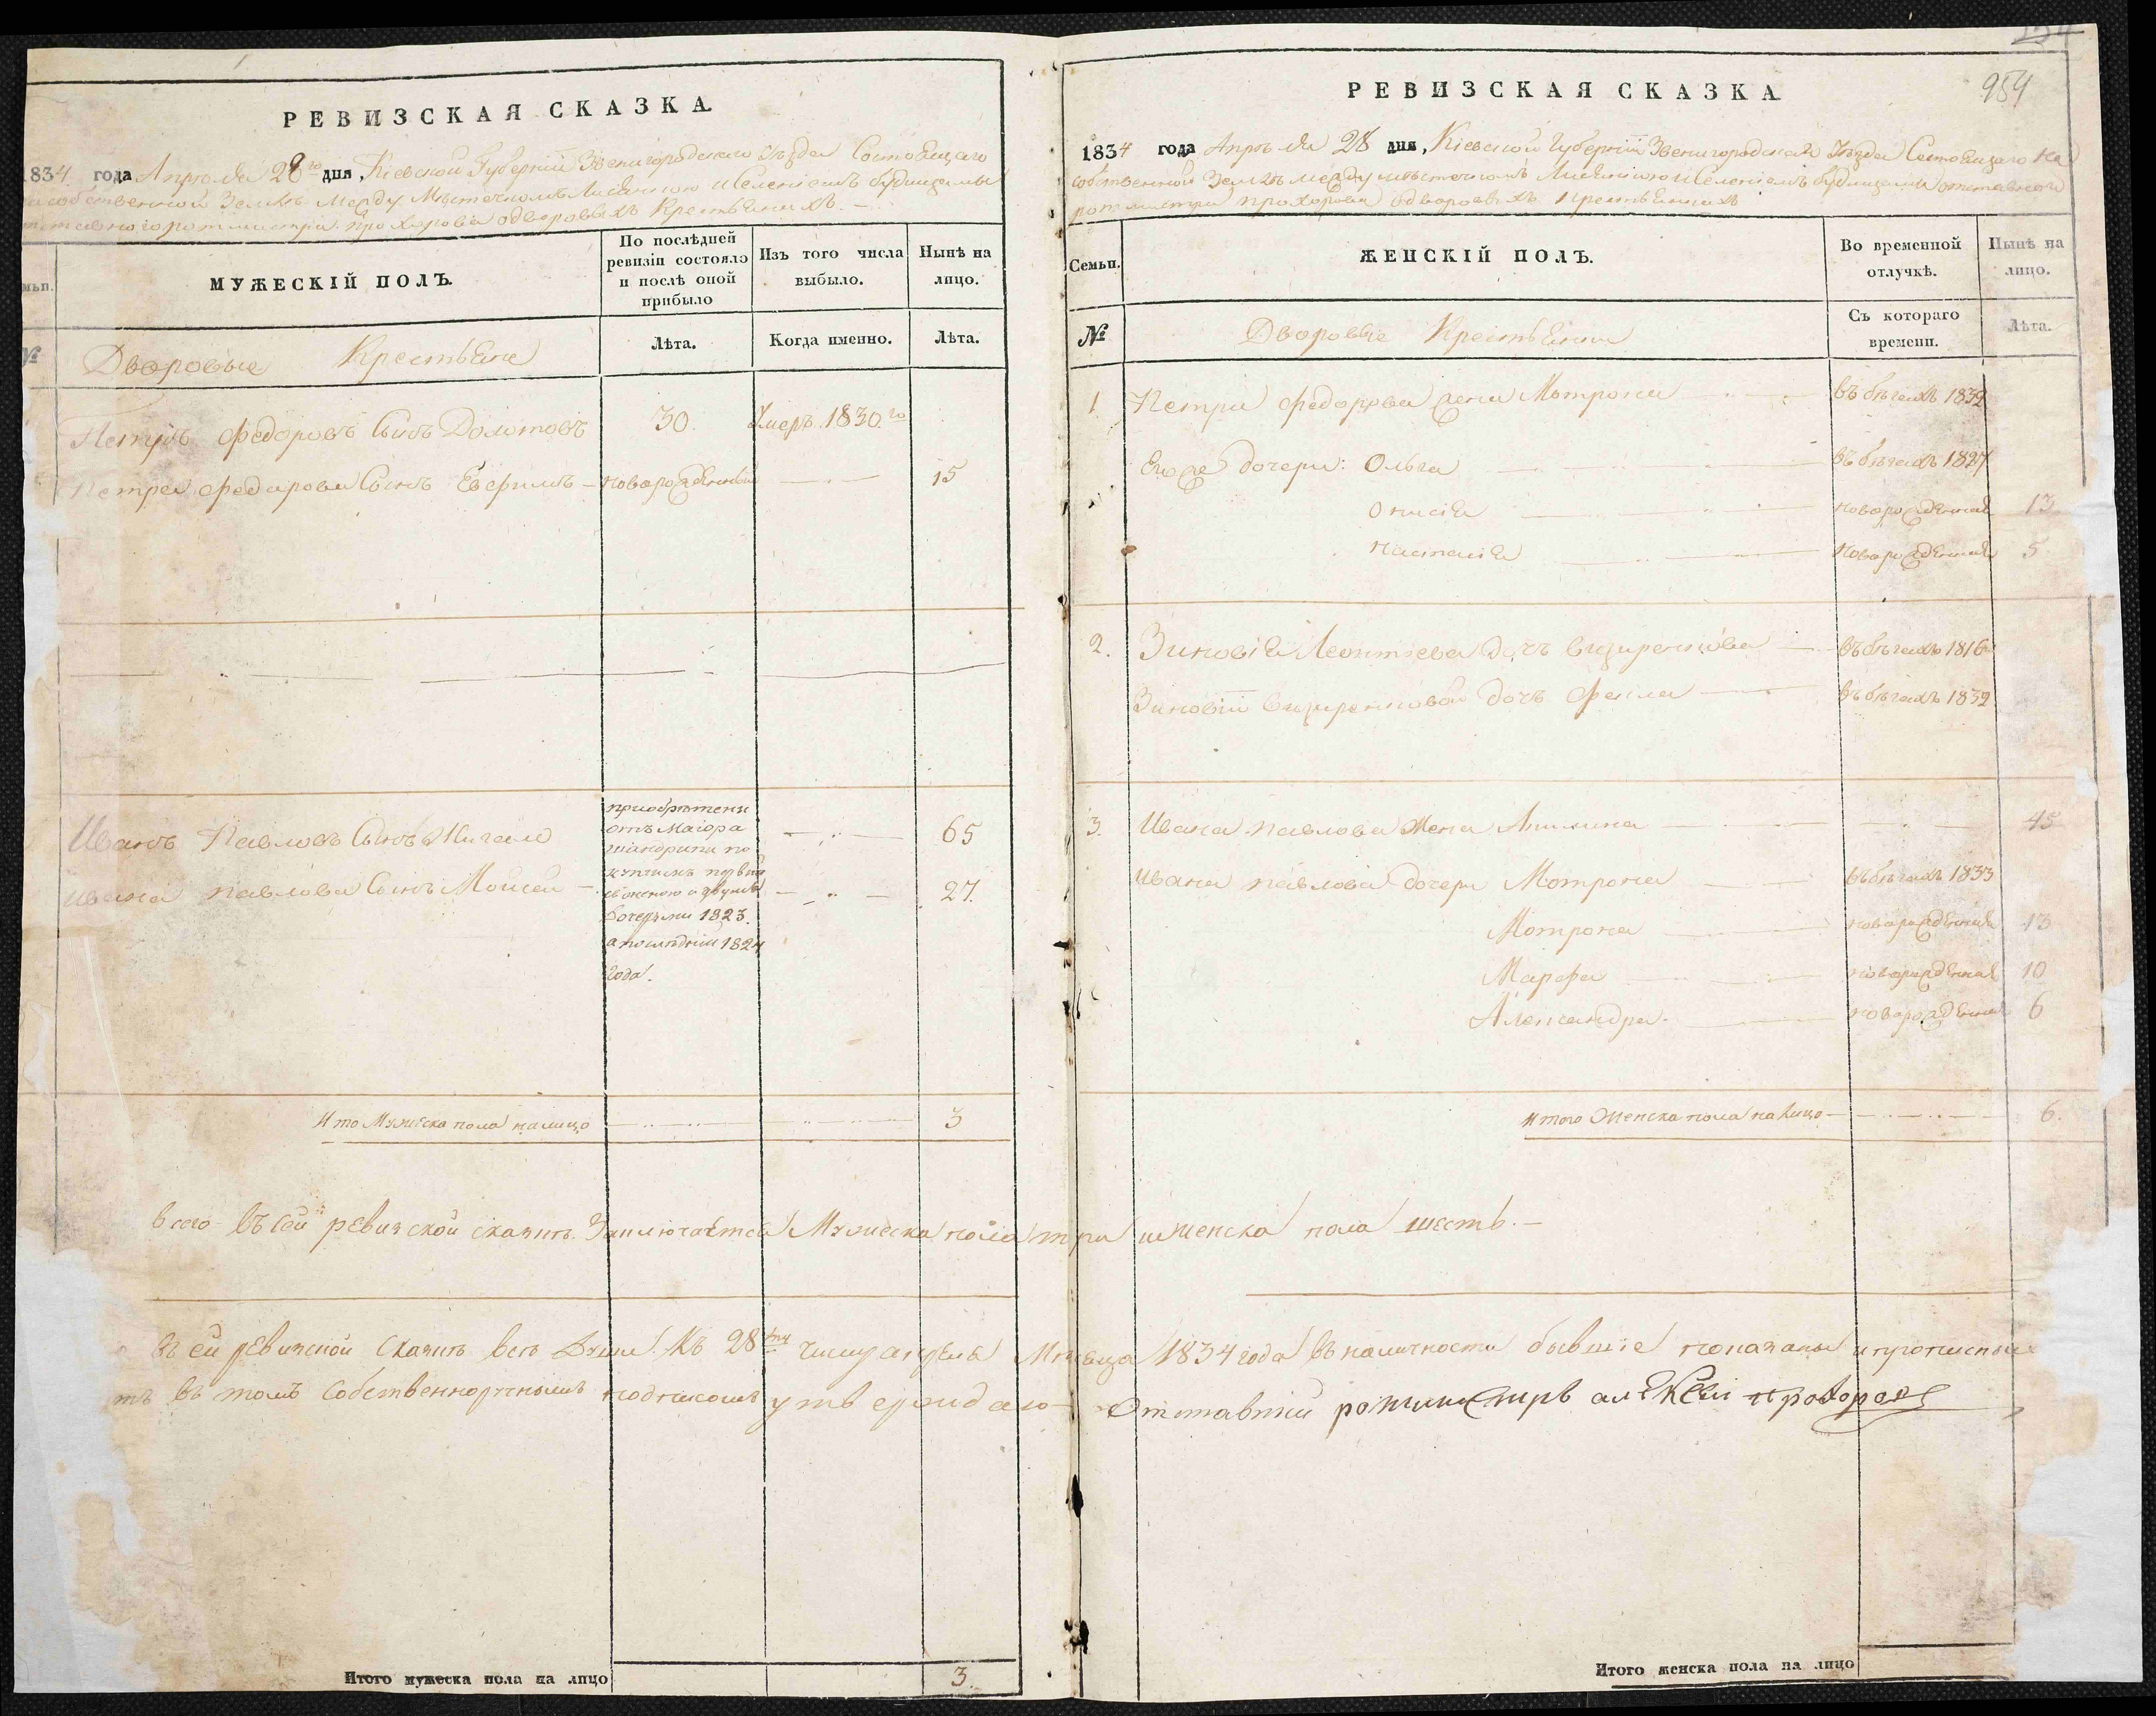 РЕВИЗСКАЯ СКАЗКА
1834 года Апреля 28го дня, Кіевской Губерніи Звенигородскаго Уѣзда Состоящаго
на собственной Землѣ между Мѣстечкомъ Лисянкою и Селеніемъ Будищамы
отставного ротмистра Прохорова одворовыхъ Крестьянахъ. —
МУЖЕСКІЙ ПОЛЪ.
По послѣдней ревизіи состояло и послѣ оной прибыло
Изъ того числа выбыло.
Нынѣ на лицо.
№
Дворовые Крестьяне
Лѣта.
Когда именно.
Лѣта.
Петръ Федоровъ Сынъ Долотовъ 30. Умеръ 1830го
Петра Федорова Сынъ Ефимъ — новорожденный 15
Иванъ Павловъ Сынъ 65
Ивана Павлова Сынъ Мойсей — 27.
приобрѣтены
отъ Маіора
по
купчимъ первый
съ женою и двумя
дочерьми 1823.
а послѣдній 1824
года.
Итого Мужеска пола налицо 3
Итого мужеска пола на лицо 3.
РЕВИЗСКАЯ СКАЗКА
954
1834 года Апрѣля 28 дня, Кіевской Губерніи Звенигородскаго Уѣзда Состоящаго на
собственной Землѣ между мѣстечкомъ Лисянкою и Селеніемъ Будищамы отставного
ротмистра Прохорова одворовыхъ Крестьянахъ
Семьи.
ЖЕНСКІЙ ПОЛЪ.
Во временной отлучкѣ.
Нынѣ на лицо.
№
Дворовые Крестьяне
Съ котораго времени.
Лѣта.
1 Петра Федорова жена Мотрона въ бѣгахъ 1832
Егоже дочери: Ольга въ бѣгахъ 1827
Онисія новорожденная 13
Настасія новорожденная 5
2. Зиновія Леонтіева дочь въ бѣгахъ 1816
Зиновіи дочь Фекла въ бѣгахъ 1832
3. Ивана Павлова Жена Акилина 45
Ивана Павлова дочери Мотрона въ бѣгахъ 1833
Мотрона новорожденная 13
Марфа новорожденная 10
Александра новорожденная 6
Итого Женска пола на лицо 6.
Всего въ сей ревизской сказкѣ Заключается Мужеска пола три и женска пола шесть. —
въ сей ревизской Сказкѣ всѣ Души Къ 28му числу апреля Мѣсяца 1834 года въ наличности бывшіе показаны и прописныхъ
въ томъ собственноручнымъ подписомъ утверждаю Отставной ротмистръ алексѣй прохоров
Итого женска пола на лицо